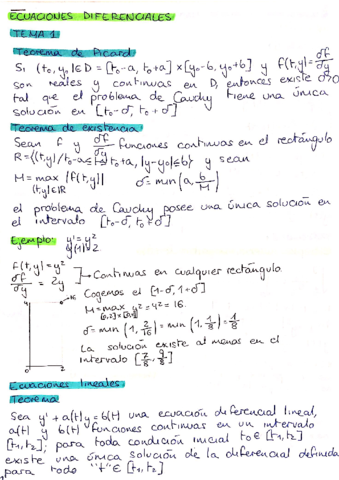 ECUACIONES DIFERENCIALES
TEMA 1
Teorema de Picard
Si (t₀,y₀)∈D = [t₀-a, t₀+a]×[y₀-b, y₀+b] y f(t,y)=∂f/∂y
son reales y continuas en D, entonces existe σ>0
tal que el problema de Cauchy tiene una única
solución en [t₀-σ, t₀+σ]
Teorema de existencia
Sean f y ∂f/∂y funciones continuas en el rectángulo
R={(t,y)/t₀-a≤t≤t₀+a, |y-y₀|≤b} y sean
M = max |f(t,y)| σ = min(a, b/M)
(t,y)∈R
el problema de Cauchy posee una única solución en
el intervalo [t₀-σ, t₀+σ]
Ejemplo: y'=y²
y(1)=2
f(t,y)=y²
∂f/∂y = 2y
Continuas en cualquier rectángulo.
Cogemos el [1-σ, 1+σ]
M = max y² = 4² = 16
[0,2]×[0,4]
σ = min (1, 2/16) = min (1, 1/8) = 1/8
La solución existe al menos en el
intervalo [7/8, 9/8]
4
16
0
2
Ecuaciones lineales
Teorema
Sea y' + a(t)y = b(t) una ecuación diferencial lineal,
a(t) y b(t) funciones continuas en un intervalo
[t₁,t₂]; para toda condición inicial t₀∈[t₁,t₂]
existe una única solución de la diferencial definida
para todo "t"∈[t₁,t₂]